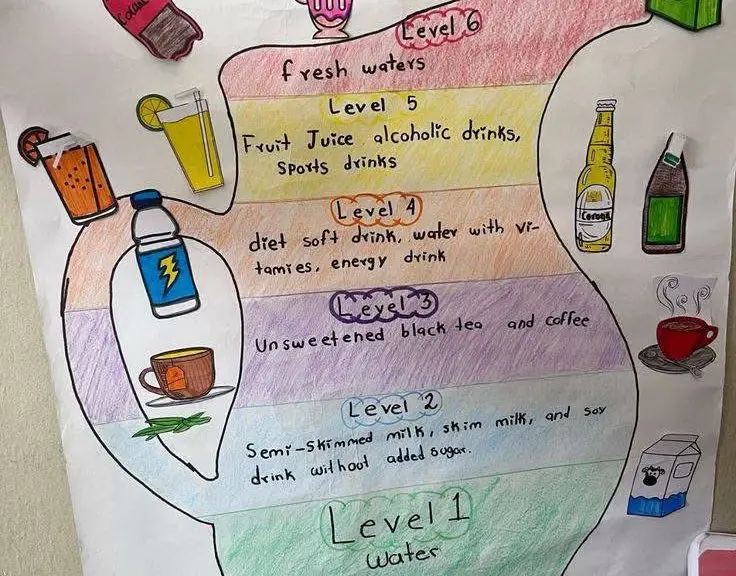 Level 6
fresh waters
Level 5
Fruit Juice alcoholic drinks,
Sports drinks
Level 4
diet soft drink, water with vi-
tamies, energy drink
Level 3
Unsweetened black tea and coffee
Level 2
Semi-skimmed milk, skim milk, and soy
drink without added sugar.
Level 1
Water